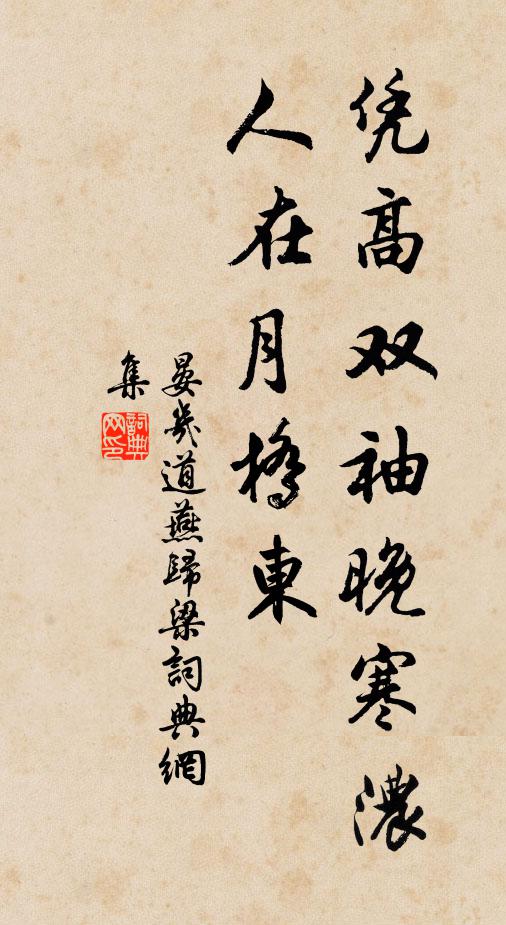 凭高双袖晚寒濃
人在月橋東
晏幾道燕歸梁詞典網
集
詞典網印